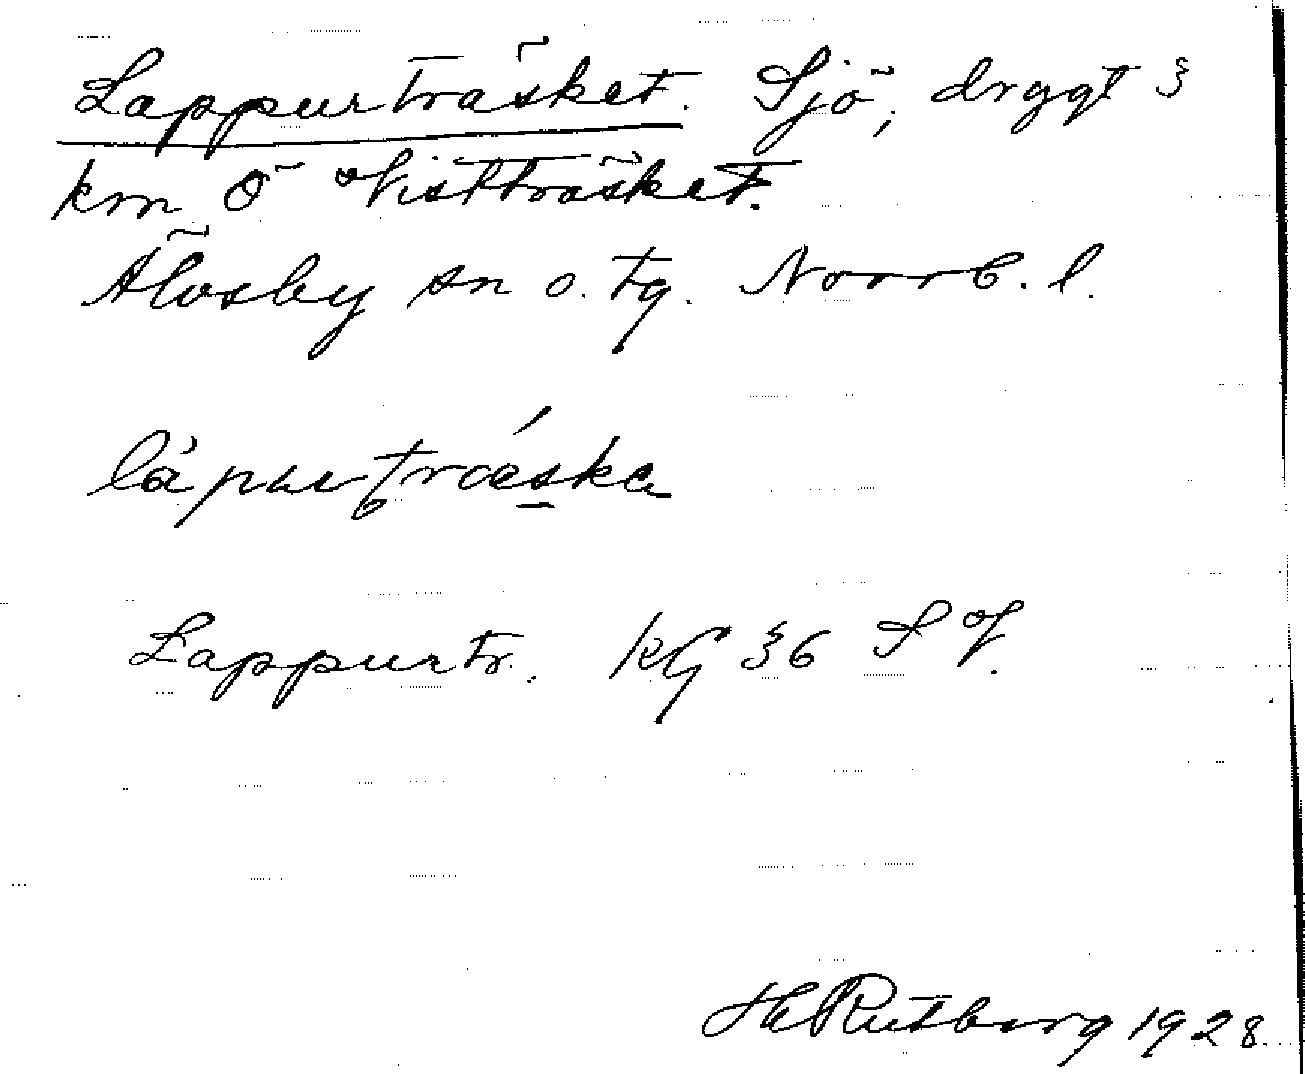 Lappurträsket. Sjö, drygt 3
km Ö Vistträsket.
Älvsby sn o. tg. Norrb. l.
làpurtrǽska
Lappurtr. KG 36 SV.
H Rutberg 1928.